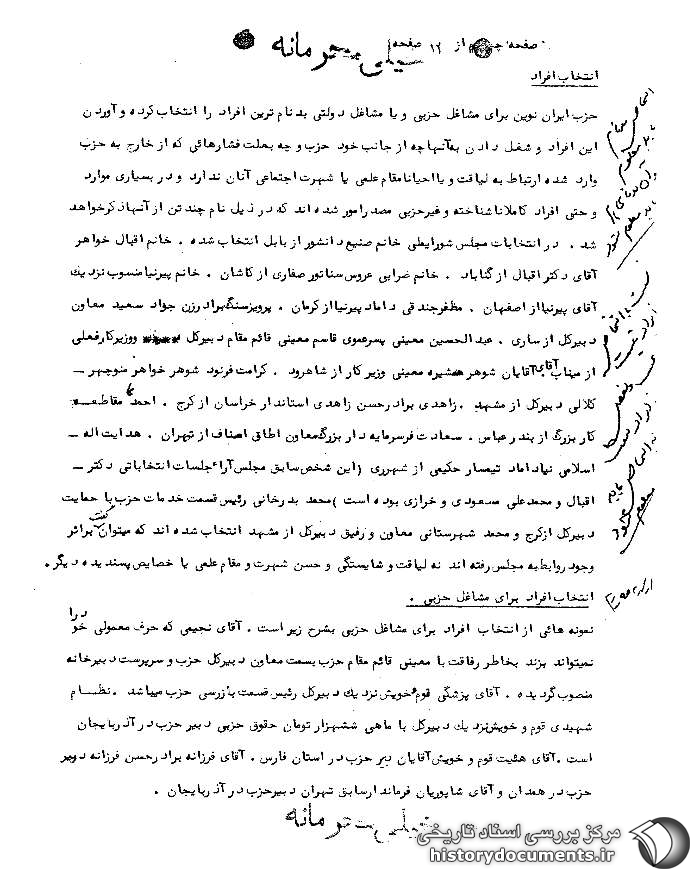 صفحه از ۱۲ صفحه
خیلی محرمانه
انتخاب افراد
حزب ایران نوین برای مشاغل حزبی و یا مشاغل دولتی بدنام ترین افراد را انتخاب کرده و آوردن
این افراد و شغل دادن به آنها چه از جانب خود حزب و چه بعلت فشارهائی که از خارج به حزب
وارد شده ارتباط به لیاقت و یا احیانا مقام علمی یا شهرت اجتماعی آنان ندارد و در بسیاری موارد
و حتی افراد کاملا ناشناخته و غیرحزبی مصدر امور شده اند که در ذیل نام چند تن از آنها ذکر خواهد
شد . در انتخابات مجلس شورایملی خانم صنیع دانشور از بابل انتخاب شده . خانم اقبال خواهر
آقای دکتر اقبال از گناباد . خانم ضرابی عروس سناتور صفاری از کاشان . خانم پیرنیا منسوب نزدیک
آقای پیرنیا از اصفهان . مظفر جندقی داماد پیرنیا از کرمان . پرویز سنگ برادر زن جواد سعید معاون
دبیرکل از ساری . عبدالحسین معینی پسرعموی قاسم معینی قائم مقام دبیرکل ووزیرکار فعلی
از میناب آقای آقایان شوهر همشیره معینی وزیر کار از شاهرود . کرامت فرنود شوهر خواهر منوچهر ـ
کلالی دبیرکل از مشهد . زاهدی برادر حسن زاهدی استاندار خراسان از کرج . احمد مقاطعه
کار بزرگ از بندرعباس . سعادت فر سرمایه دار بزرگ معاون اطاق اصناف از تهران . هدایت اله ـ
اسلامی نیا داماد تیمسار حکیمی از شهرری (این شخص سابق مجلس آراء جلسات انتخاباتی دکتر ـ
اقبال و محمدعلی مسعودی و خرازی بوده است ) محمد بدرخانی رئیس قسمت خدمات حزب با حمایت
دبیرکل از کرج و محمد شهرستانی معاون و رفیق دبیرکل از مشهد انتخاب شده اند که میتوان گفت براثر
وجود روابط به مجلس رفته اند نه لیاقت و شایستگی و حسن شهرت و مقام علمی یا خصایص پسندیده دیگر .
انتخاب افراد برای مشاغل حزبی .
نمونه هائی از انتخاب افراد برای مشاغل حزبی بشرح زیر است . آقای نجیمی که حرف معمولی خود را
نمیتواند بزند بخاطر رفاقت با معینی قائم مقام حزب بسمت معاون دبیرکل حزب و سرپرست دبیرخانه
منصوب گردیده . آقای پزشگی قوم و خویش نزدیک دبیرکل رئیس قسمت بازرسی حزب میباشد . نظام
شهیدی قوم و خویش نزدیک دبیرکل با ماهی ششهزار تومان حقوق حزبی دبیر حزب در آذربایجان
است . آقای هشیت قوم و خویش آقایان دبیر حزب در استان فارس . آقای فرزانه برادر حسن فرزانه دبیر
حزب در همدان و آقای شاپوریان فرماندار سابق تهران دبیر حزب در آذربایجان .
خیلی محرمانه
مرکز بررسی اسناد تاریخی
historydocuments.ir